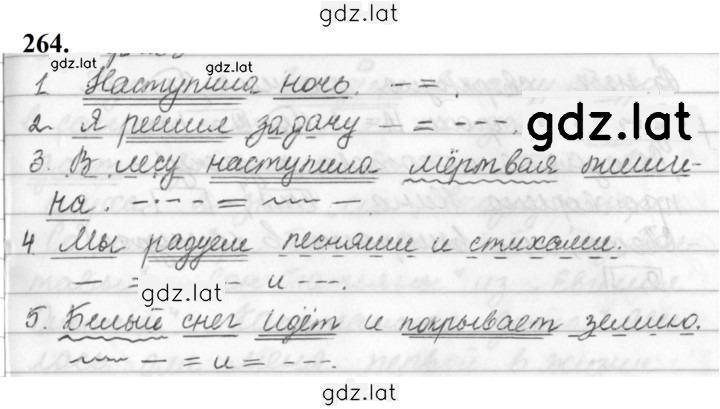 gdz.lat
264.
gdz.lat
gdz.lat
1. Наступила ночь.
gdz.lat
2. Я решил задачу
3. В лесу наступила мёртвая тиши-
на.
4. Мы радуем песнями и стихами.
и
gdz.lat
5. Белый снег идёт и покрывает землю.
и
gdz.lat